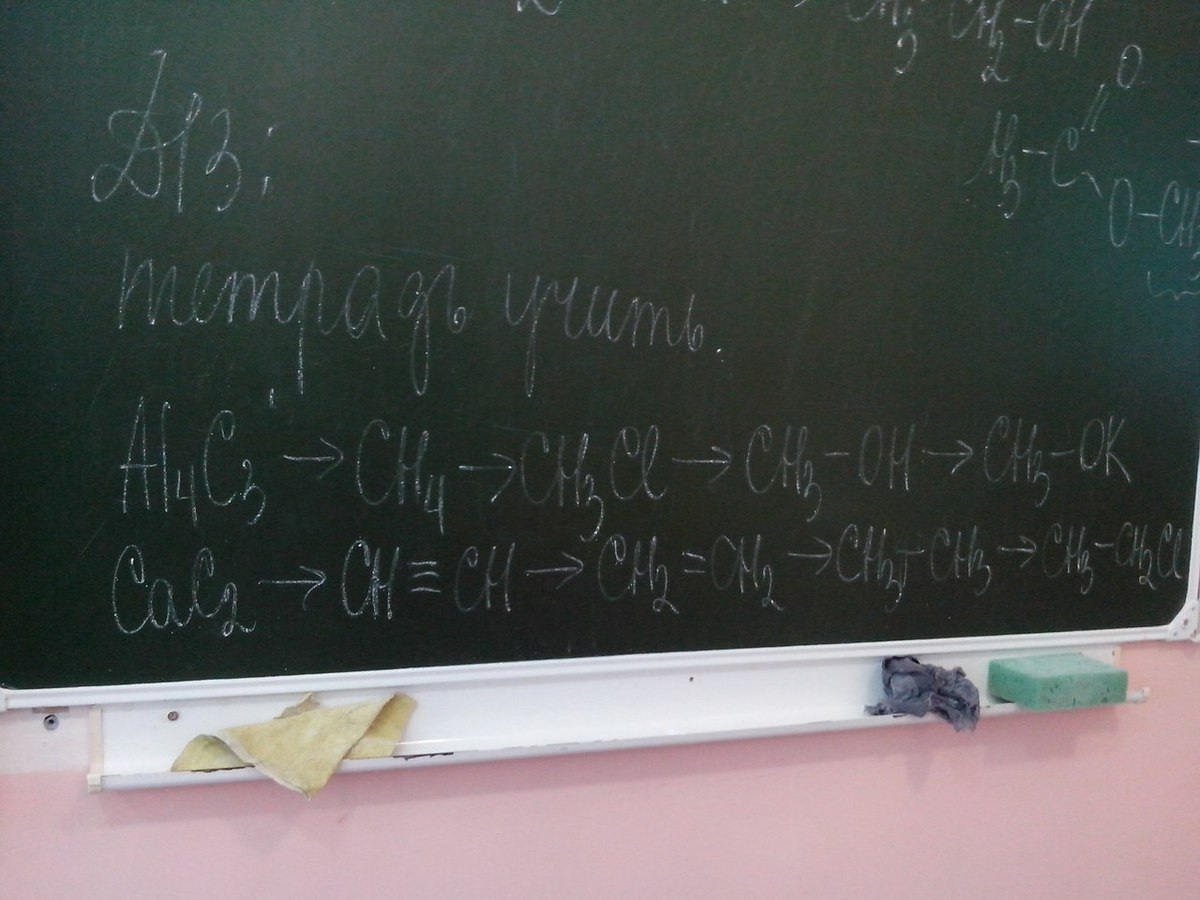 CH₃ CH₂-OH
O
CH₃-C
O-CH₃
Д/З:
тетрадь учить.
Al₄C₃ → CH₄ → CH₃Cl → CH₃-OH → CH₃-OK
CaC₂ → CH≡CH → CH₂=CH₂ → CH₃-CH₃ → CH₃-CH₂Cl